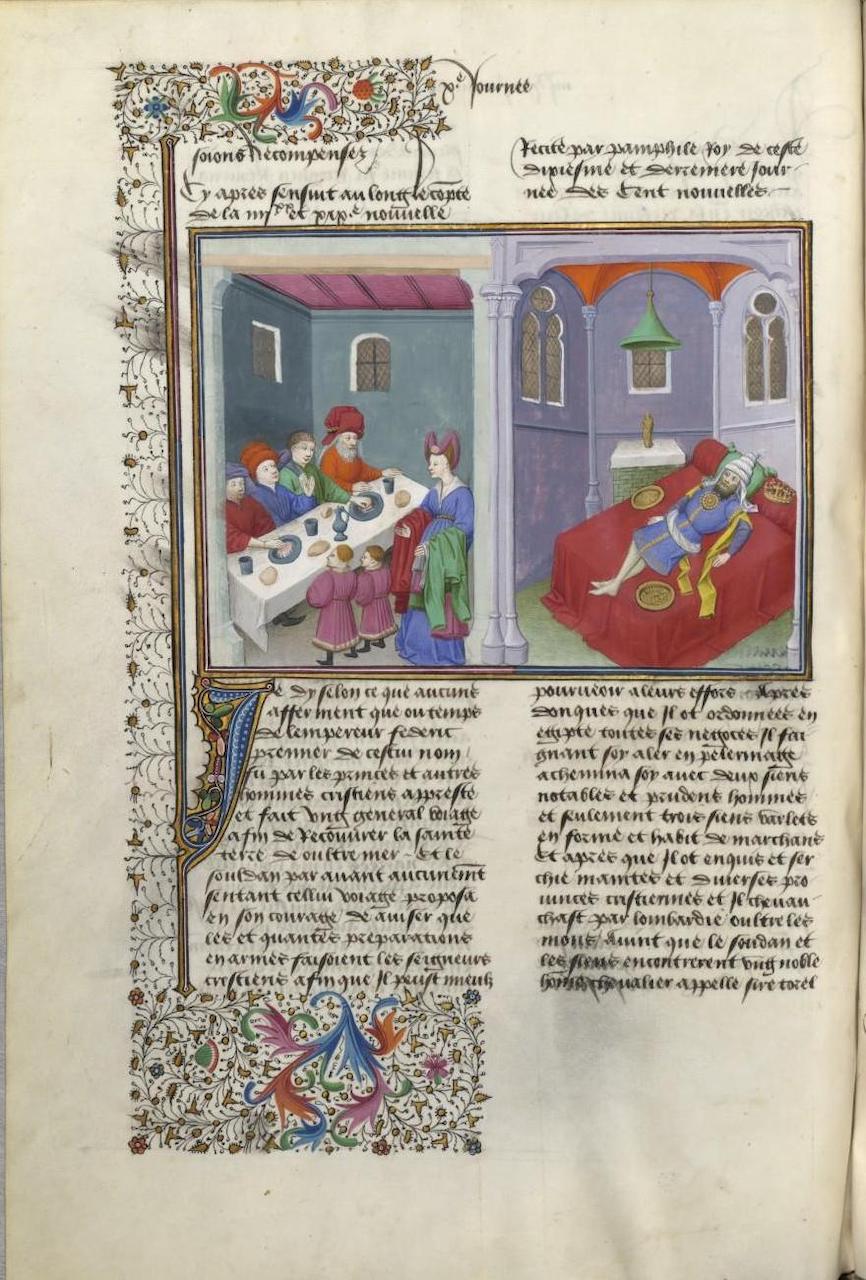 xe Journee
soions Recompensez
Cy apres sensuit au long le compte
de la iiiixx et xixe nouvelle
Recité par pamphile Roy de ceste
dixiesme et derreniere Jour
nee des Cent nouvelles
Je dy selon ce que aucuns
afferment que ou temps
de lempereur federic
premier de cestui nom
fu par les princes et autres
hommes cristiens appresté
et fait ung general voiage
afin de Recouvrer la sainte
terre de oultre mer Et le
souldan par avant aucunemt
sentant cellui voiage proposa
en son courage de aviser que
les et quantes preparations
en armes faisoient les seigneurs
crestiens afin que Il peust mieulx
pourveoir a leurs effors Apres
donques que Il ot ordonnees en
egipte toutes ses negoces Il fai
gnant soy aler en pelerinage
achemina soy avec deux siens
notables et prudens hommes
et seulement trois siens varlets
en forme et habit de marchans
Et apres que Il ot enquis et ser
chié maintes et diverses pro
vinces cristiennes et Il chevau
chast par lombardie oultre les
mons Avint que le soudan et
les siens encontrerent ung noble
homme chevalier appelle sire torel